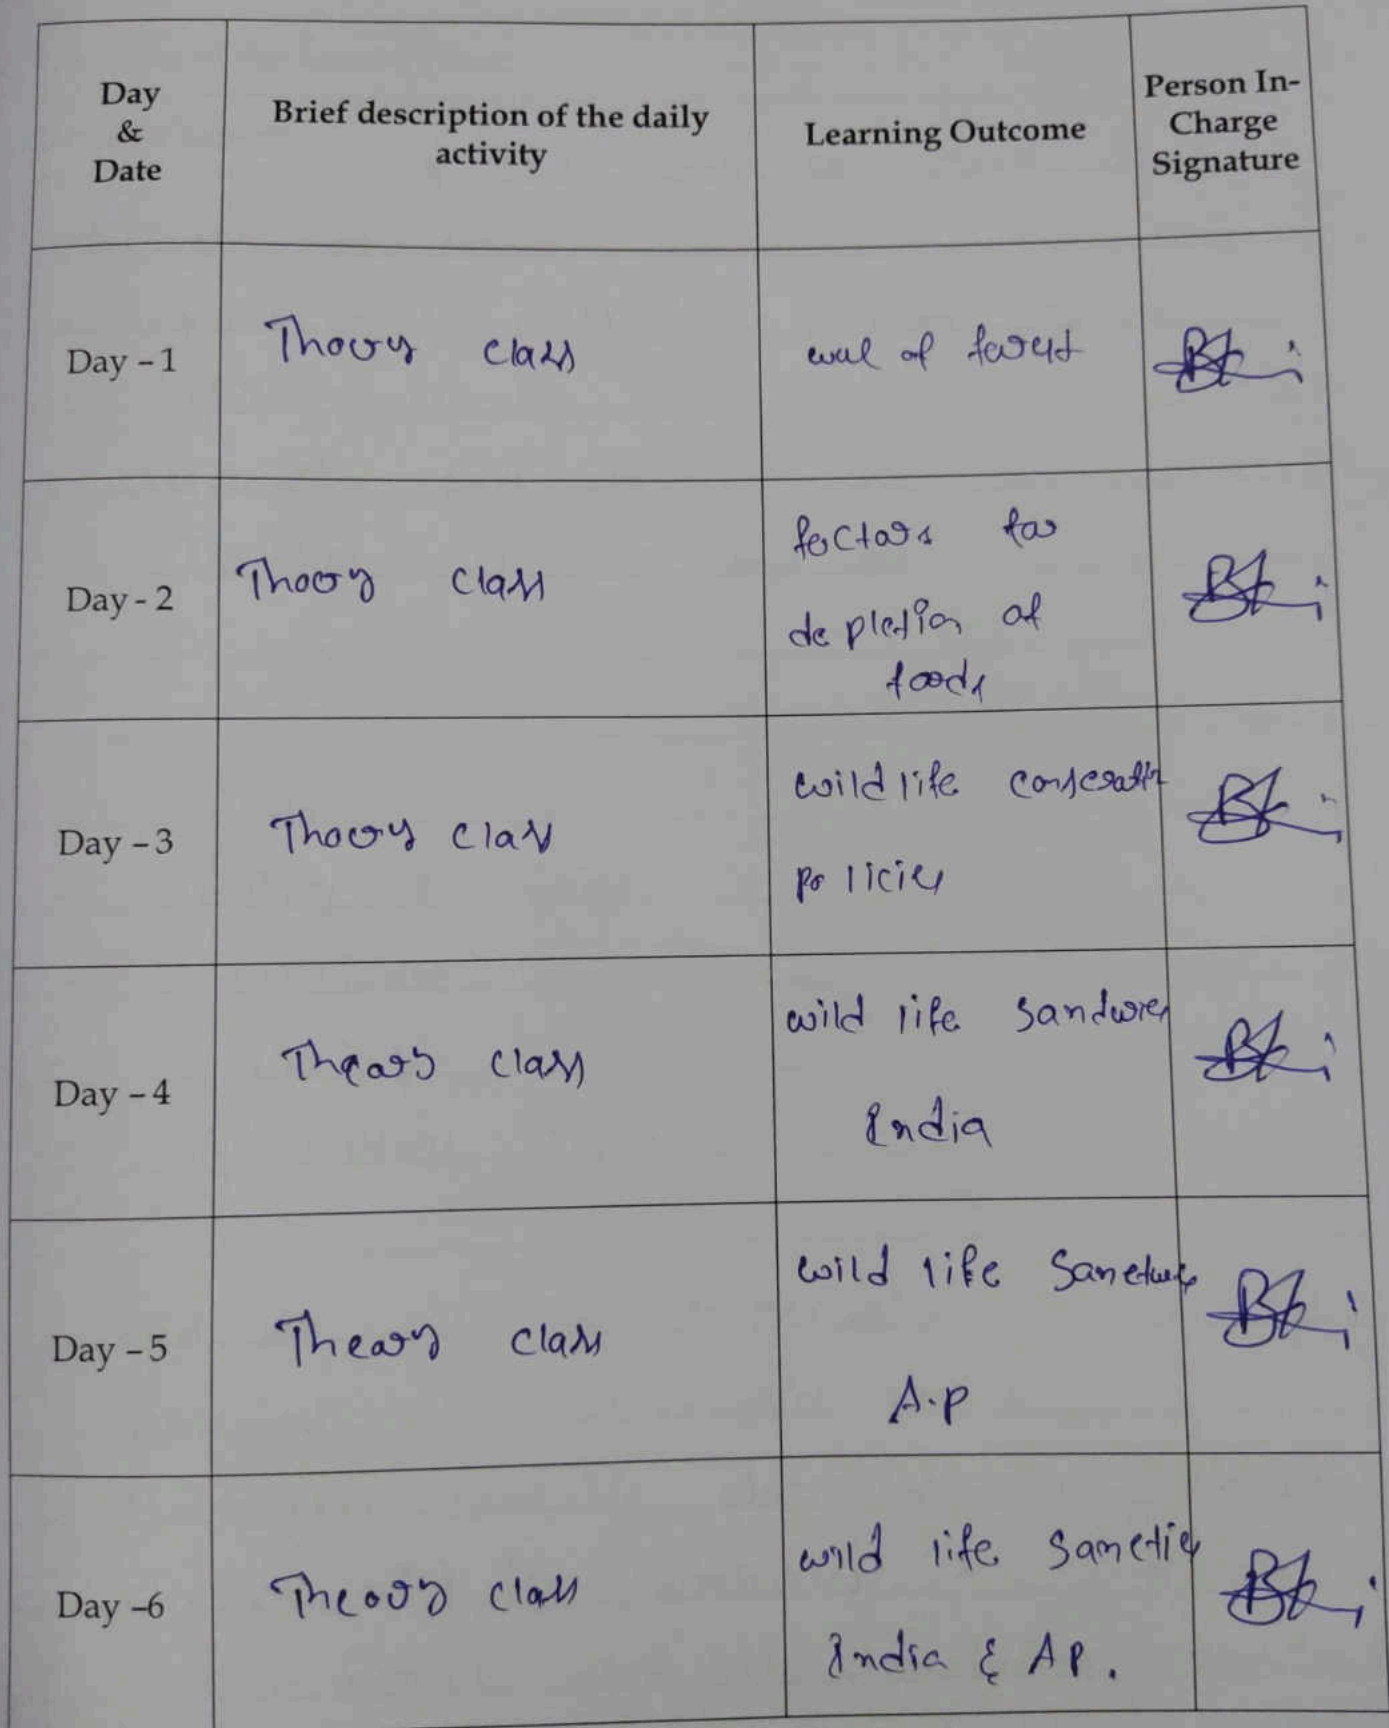 Day
&
Date
Brief description of the daily
activity
Learning Outcome
Person In-
Charge
Signature
Day – 1
Thoory class
of forest
Day - 2
Thoory class
factors for
depletion of
foods
Day – 3
Thoory class
wild life
policies
Day – 4
Theory class
wild life
India
Day – 5
Theory class
wild life
A.P
Day –6
Theory class
wild life
India & AP.